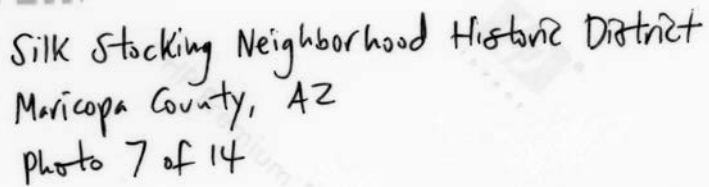 Silk Stocking Neighborhood Historic District
Maricopa County, AZ
Photo 7 of 14